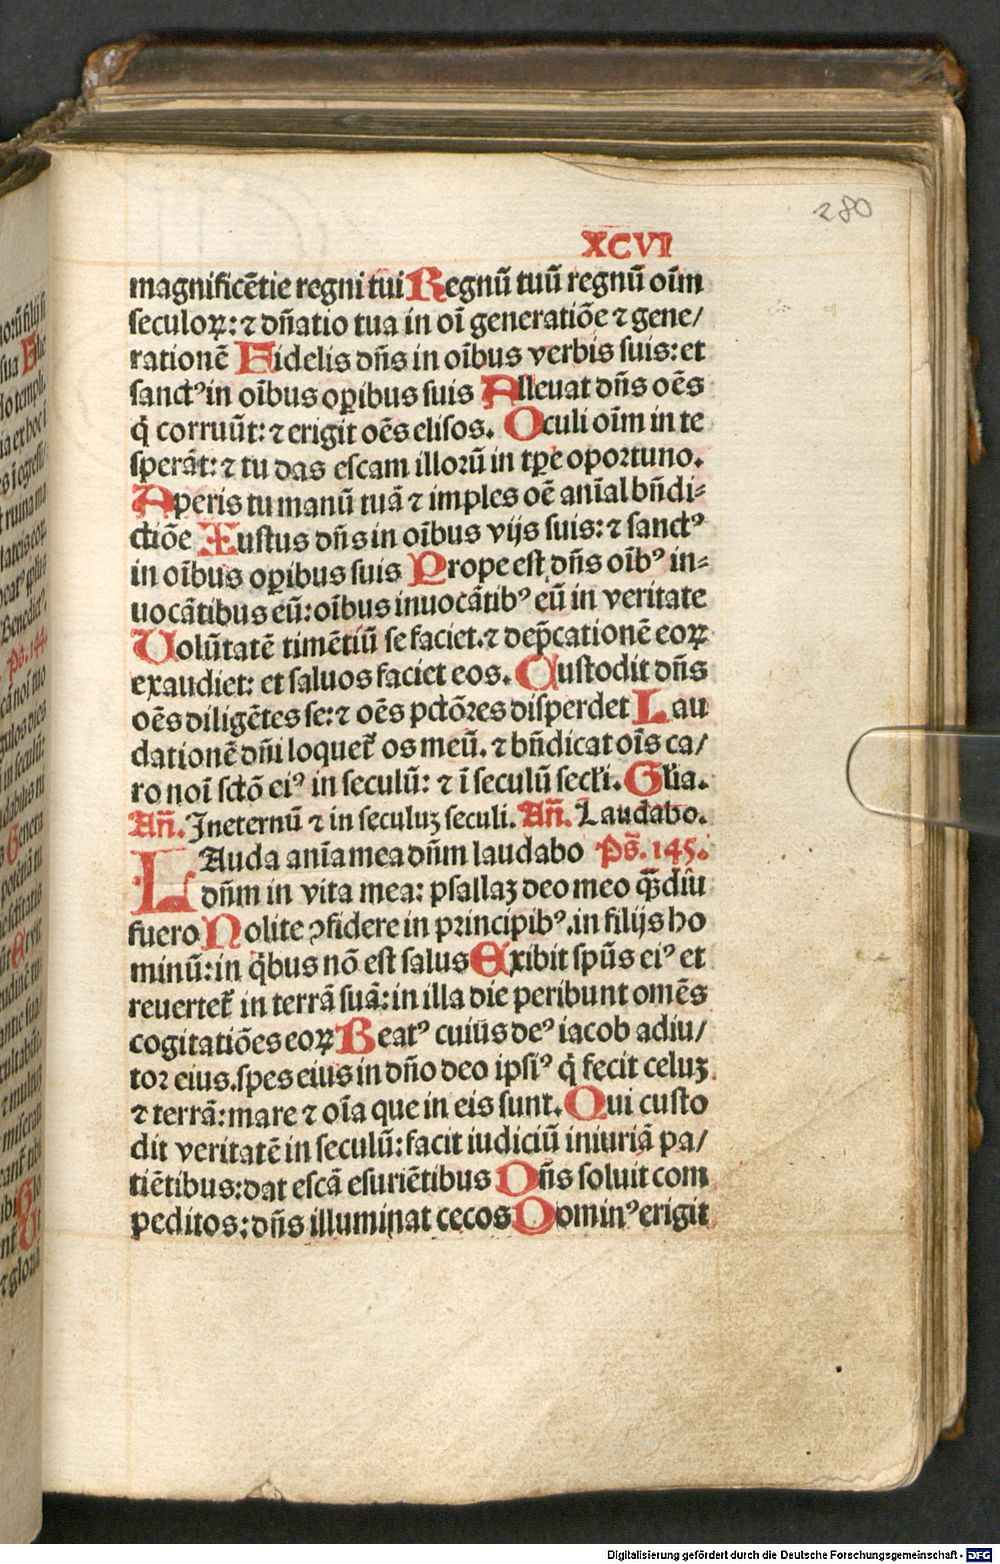 280
XCVI
magnificẽtie regni tui Regnũ tuũ regnũ oĩm
seculoꝝ: ⁊ dñatio tua in oĩ generatiõe ⁊ gene/
rationẽ Fidelis dñs in oĩbus verbis suis: et
sanctꝰ in oĩbus oꝑibus suis Alleuat dñs oẽs
q̃ corruũt: ⁊ erigit oẽs elisos. Oculi oĩm in te
sperãt: ⁊ tu das escam illorũ in tꝑe oportuno.
Aperis tu manũ tuã ⁊ imples oẽ anĩal bñdi⸗
ctiõe Iustus dñs in oĩbus vijs suis: ⁊ sanctꝰ
in oĩbus oꝑibus suis Prope est dñs oĩbꝰ in⸗
uocãtibus eũ: oĩbus inuocãtibꝰ eũ in veritate
Volũtatẽ timẽtiũ se faciet. ⁊ dep̃cationẽ eoꝝ
exaudiet: et saluos faciet eos. Custodit dñs
oẽs diligẽtes se: ⁊ oẽs pctõres disperdet Lau
dationẽ dñi loquet̃ os meũ. ⁊ bñdicat oĩs ca/
ro noĩ sctõ eiꝰ in seculũ: ⁊ ĩ seculũ secl̃i. Gl̃ia.
Añ. Ineternũ ⁊ in seculuꝫ seculi. Añ. Laudabo.
LAuda anĩa mea dñm laudabo Ps̃. 145.
dñm in vita mea: psallaꝫ deo meo qȝdiũ
fuero Nolite ꝯfidere in principibꝰ. in filijs ho
minũ: in q̃bus nõ est salus Exibit spũs eiꝰ et
reuertet̃ in terrã suã: in illa die peribunt omẽs
cogitatiões eoꝝ Beatꝰ cuiũs deꝰ iacob adiu/
tor eius. spes eius in dño deo ipsiꝰ q̃ fecit celuꝫ
⁊ terrã: mare ⁊ oĩa que in eis sunt. Qui custo
dit veritatẽ in seculũ: facit iudiciũ iniuriã pa/
tiẽtibus: dat escã esuriẽtibus Dñs soluit com
peditos: dñs illuminat cecos Dominꝰ erigit
Digitalisierung gefördert durch die Deutsche Forschungsgemeinschaft - DFG